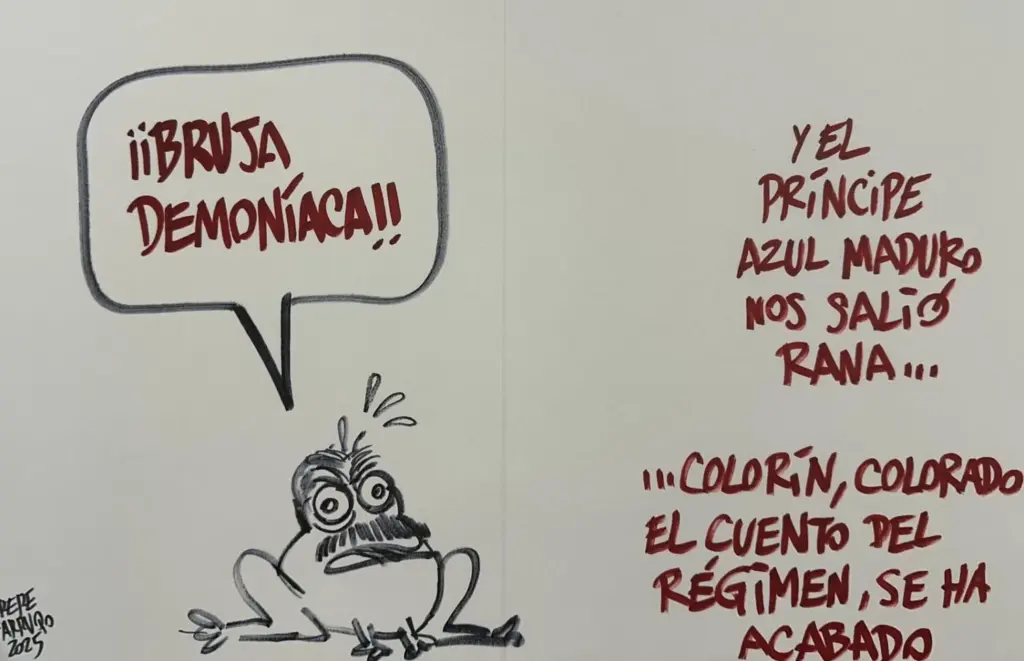 ¡¡BRUJA
DEMONÍACA!!
Y EL
PRÍNCIPE
AZUL MADURO
NOS SALIÓ
RANA...
...COLORÍN, COLORADO
EL CUENTO DEL
RÉGIMEN, SE HA
ACABADO
PEPE
FARRUQO
2025